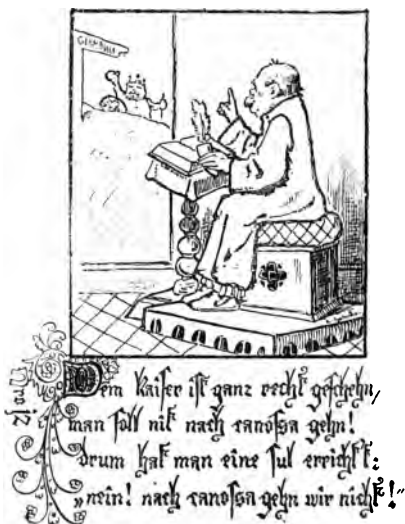 Dem kaiſer iſt ganz recht geſchehn,
man ſoll nit nach canoſsa gehn!
drum hat man eine ſul erricht't:
„nein! nach canoſsa gehn wir nicht!“